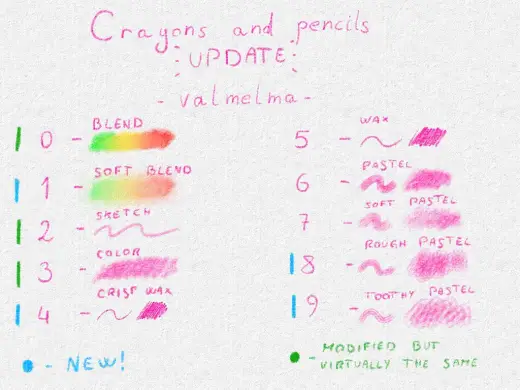 Crayons and pencils
: UPDATE :
- valmelma -
0 - BLEND
1 - SOFT BLEND
2 - SKETCH
3 - COLOR
4 - CRISP WAX
5 - WAX
6 - PASTEL
7 - SOFT PASTEL
8 - ROUGH PASTEL
9 - TOOTHY PASTEL
- NEW!
- MODIFIED BUT
VIRTUALLY THE SAME